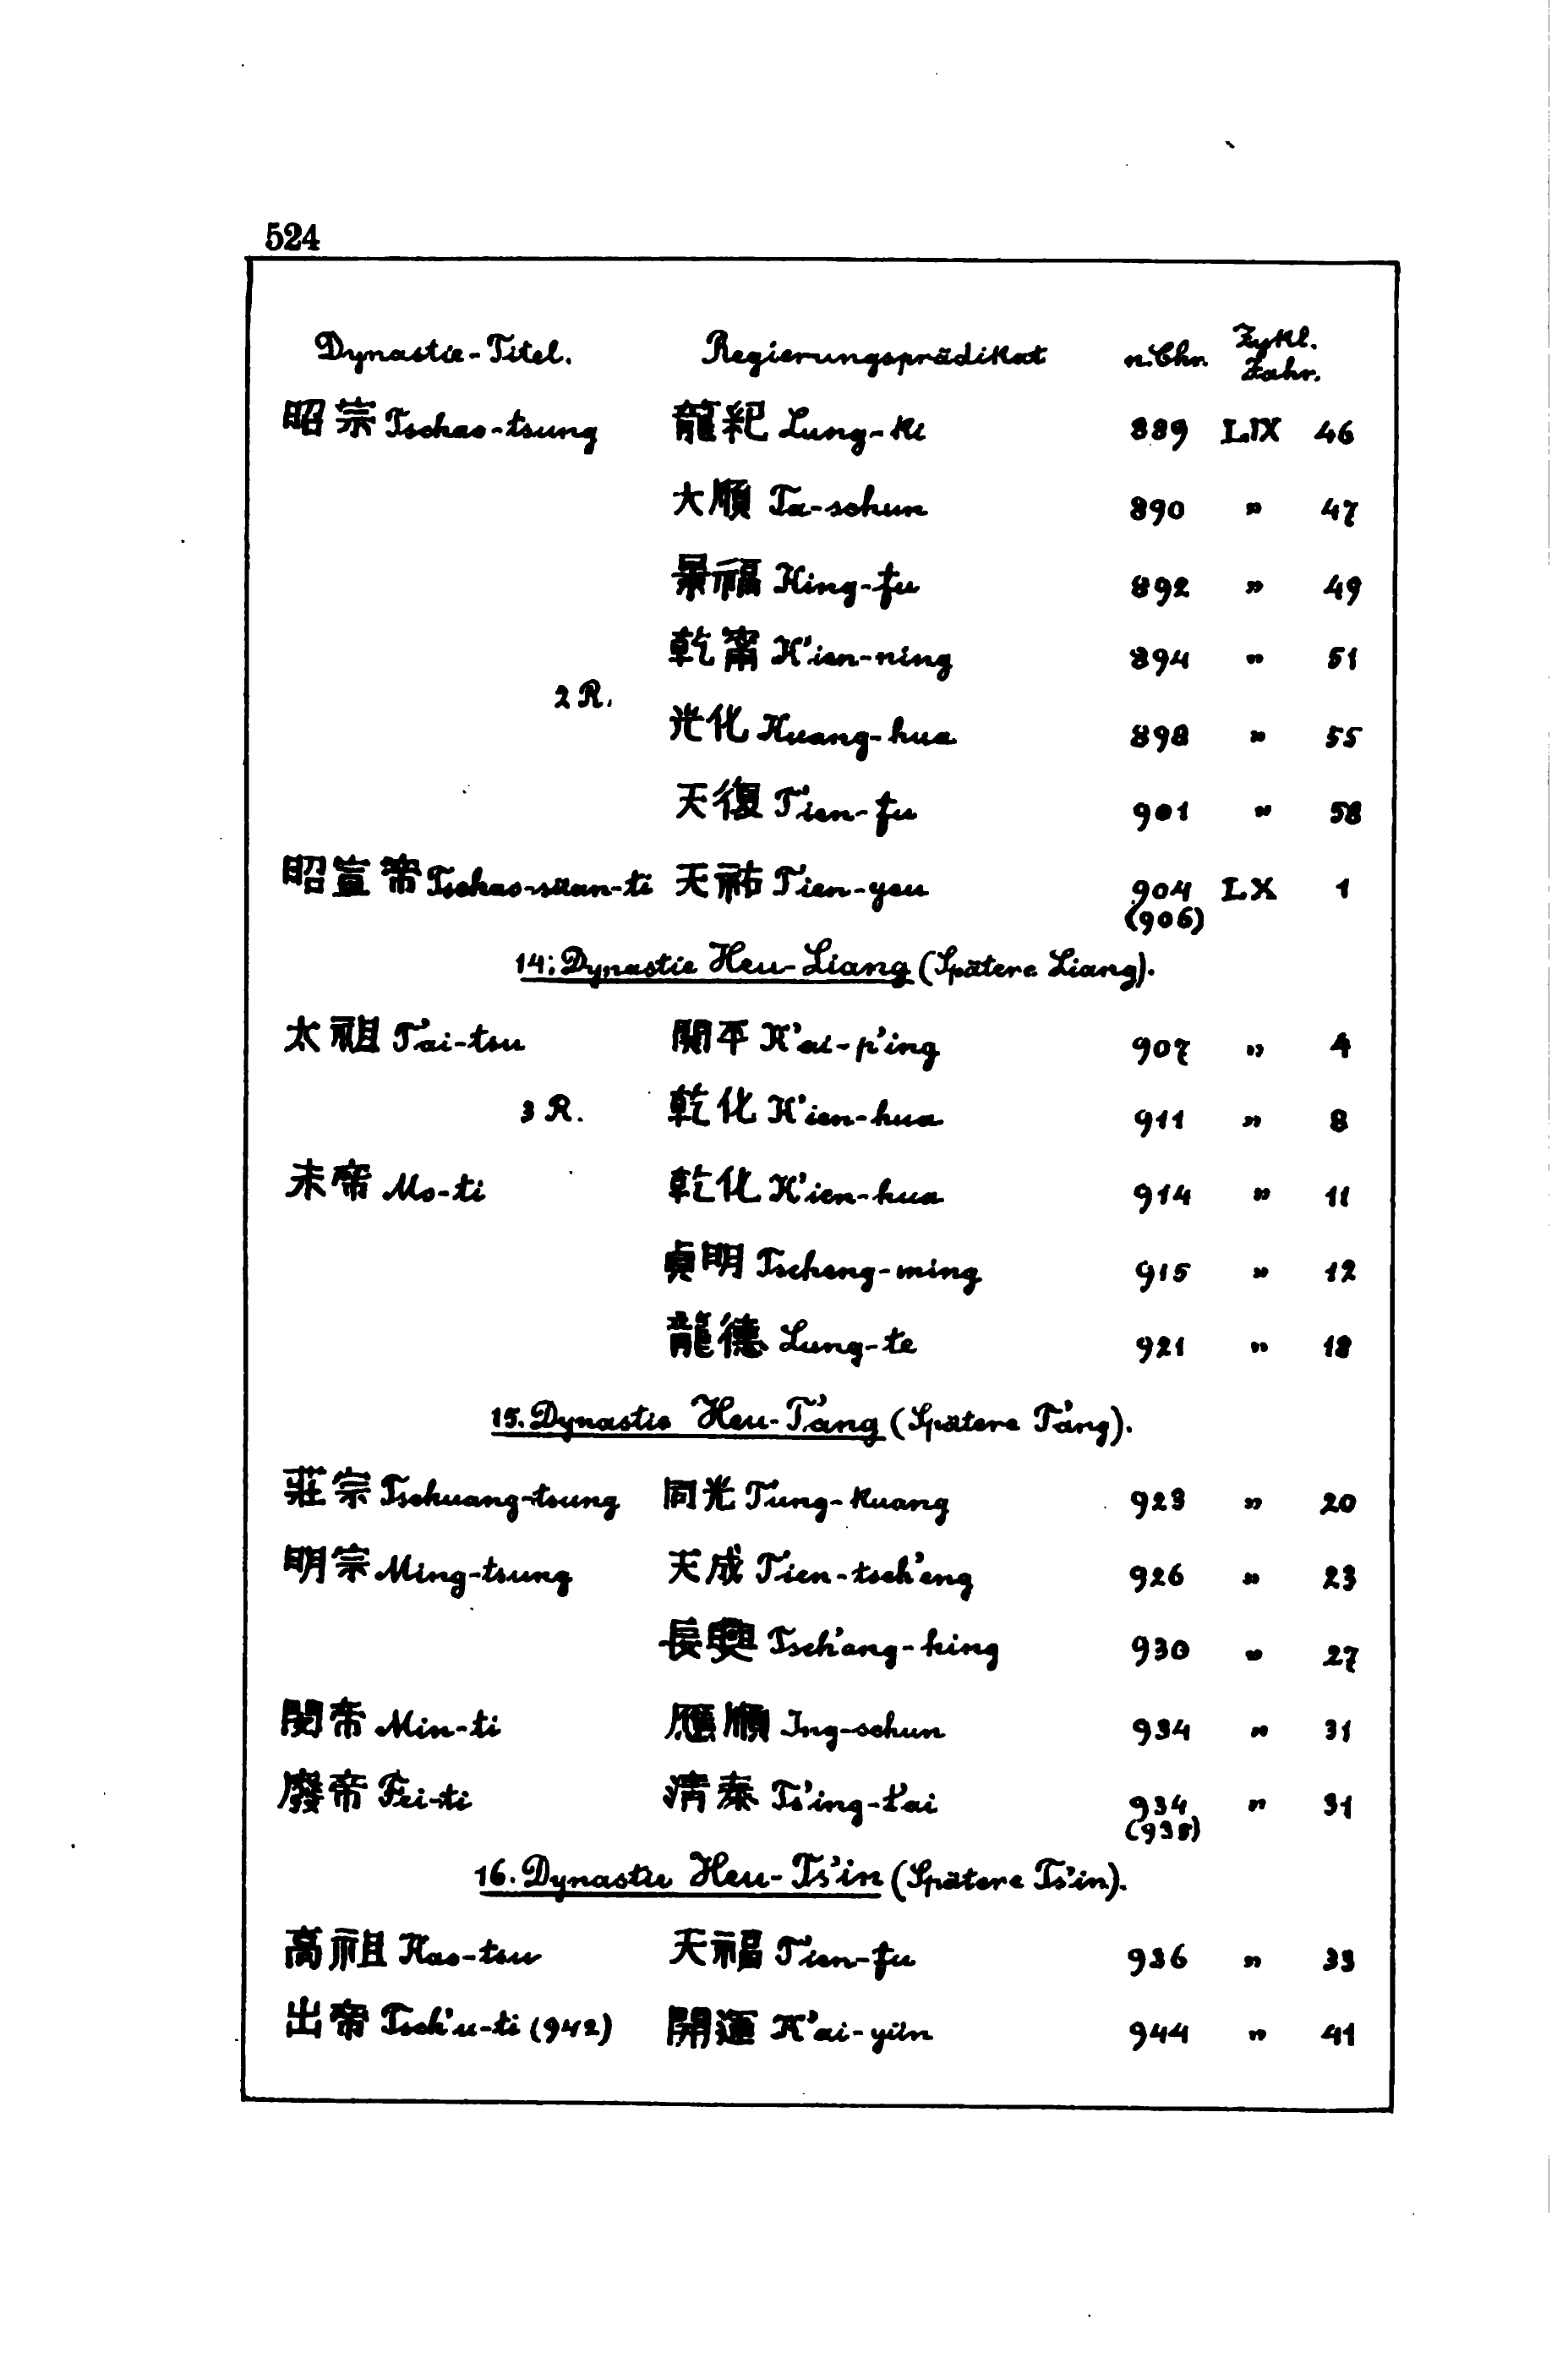 524
Dynastie-Titel. Regierungsprädikat n. Chr. Zykl. Jahr.
昭宗 Tschao-tsung 龍紀 Lung-ki 889 LIX 46
大順 Ta-schun 890 " 47
景福 King-fu 892 " 49
乾甯 K'ien-ning 894 " 51
2 R.
光化 Kuang-hua 898 " 55
天復 T'ien-fu 901 " 58
昭宣帝 Tschao-süan-ti 天祐 T'ien-you 904 LX 1
(906)
14. Dynastie Heu-Liang (Spätere Liang).
太祖 T'ai-tsu 開平 K'ai-p'ing 907 " 4
3 R. 乾化 K'ien-hua 911 " 8
末帝 Mo-ti 乾化 K'ien-hua 914 " 11
貞明 Tscheng-ming 915 " 12
龍德 Lung-te 921 " 18
15. Dynastie Heu-T'ang (Spätere T'ang).
莊宗 Tschuang-tsung 同光 T'ung-kuang 923 " 20
明宗 Ming-tsung 天成 T'ien-tsch'eng 926 " 23
長興 Tsch'ang-hing 930 " 27
閔帝 Min-ti 應順 Ing-schun 934 " 31
廢帝 Fei-ti 清泰 Ts'ing-t'ai 934 " 31
(935)
16. Dynastie Heu-Ts'in (Spätere Ts'in).
高祖 Kao-tsu 天福 T'ien-fu 936 " 33
出帝 Tsch'u-ti (942) 開運 K'ai-yün 944 " 41